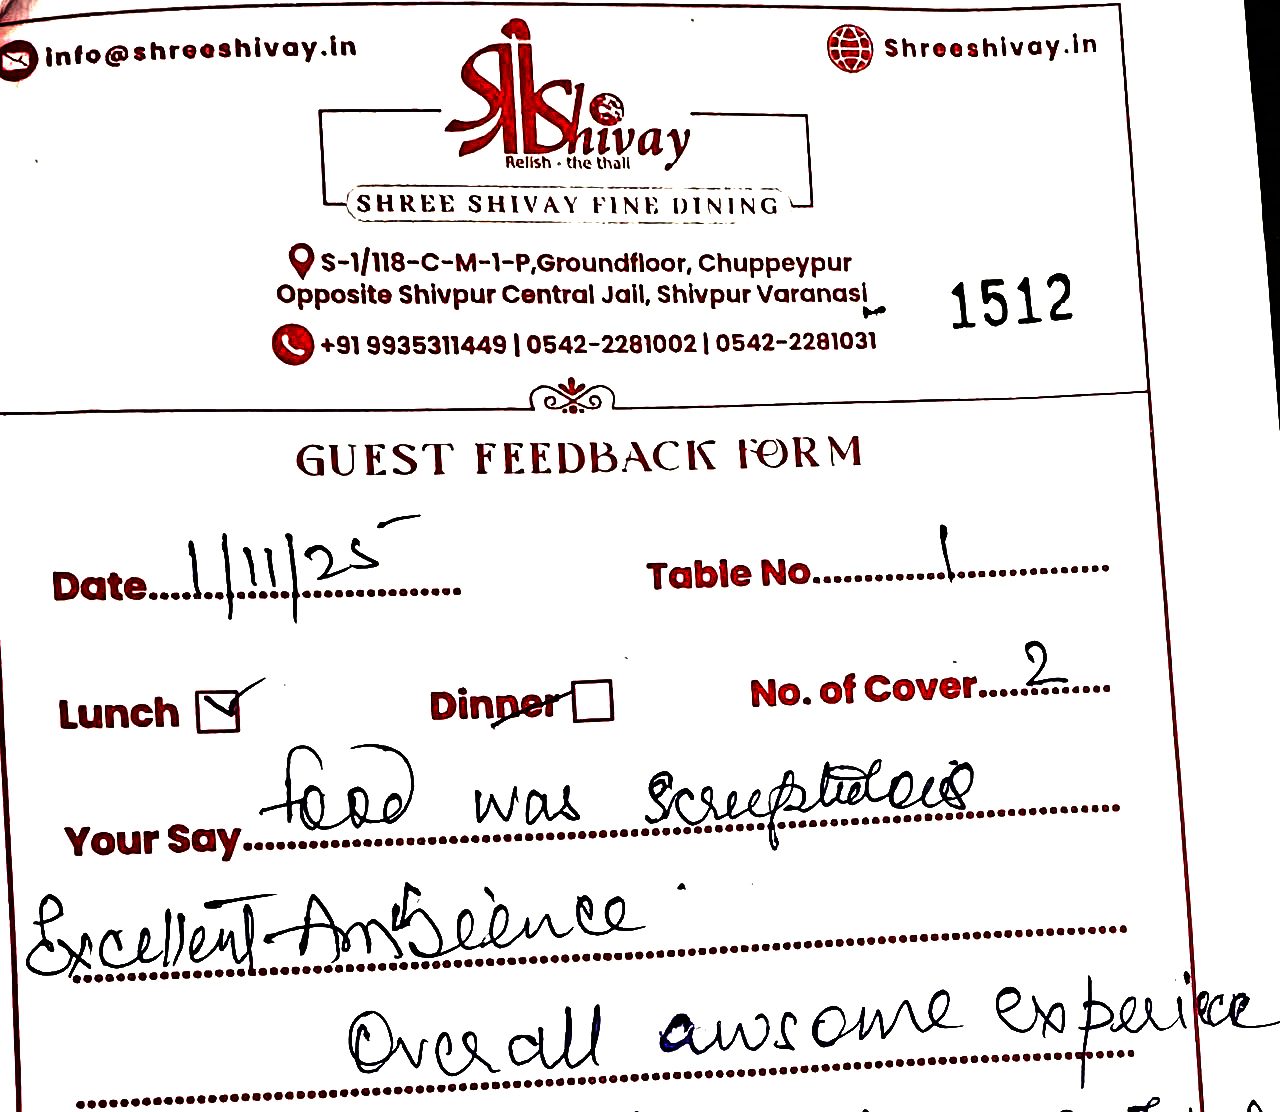 info@shreeshivay.in
Shreeshivay.in
Shivay
Relish - the thali
SHREE SHIVAY FINE DINING
S-1/118-C-M-1-P,Groundfloor, Chuppeypur
Opposite Shivpur Central Jail, Shivpur Varanasi
1512
+91 9935311449 | 0542-2281002 | 0542-2281031
GUEST FEEDBACK FORM
Date 1/11/25 Table No. 1
Lunch Dinner No. of Cover 2
Your Say food was
Excellent Ambeience
Overall awsome experiece